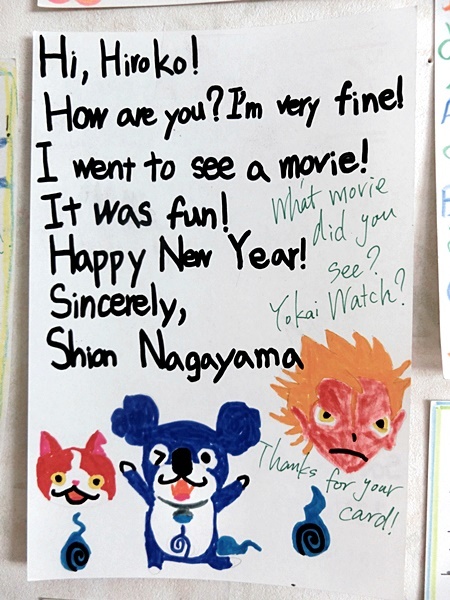 Hi, Hiroko!
How are you? I'm very fine!
I went to see a movie!
It was fun!
Happy New Year!
Sincerely,
Shion Nagayama
What movie
did you
see?
Yokai Watch?
Thanks for your
card!